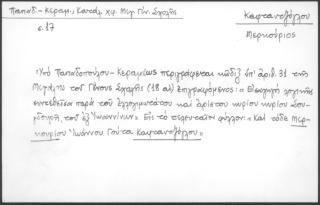 Παπαδ.-Κεραμ., Καταλ. χφ. Μεγ. Γέν. Σχολῆς
σ. 17
Καφτανζόγλου
Μερκούριος
«Ὑπὸ Παπαδοπούλου-Κεραμέως περιγράφεται κῶδιξ ὑπ' ἀριθ. 31 τῆς
Μεγάλης τοῦ Γένους Σχολῆς (18 αἰ) ἐπιγραφόμενος: « Εἰσαγωγὴ λογικῆς
συντεθεῖσα παρὰ τοῦ ἐλλογιμωτάτου καὶ ἀρίστου κυρίου κυρίου
τοῦ ἐξ Ἰωαννίνων». Εἰς τὸ τελευταῖον φύλλον: «Καὶ τόδε Μερ-
κουρίου Ἰωάννου Γούτα Καφτανζόγλου»